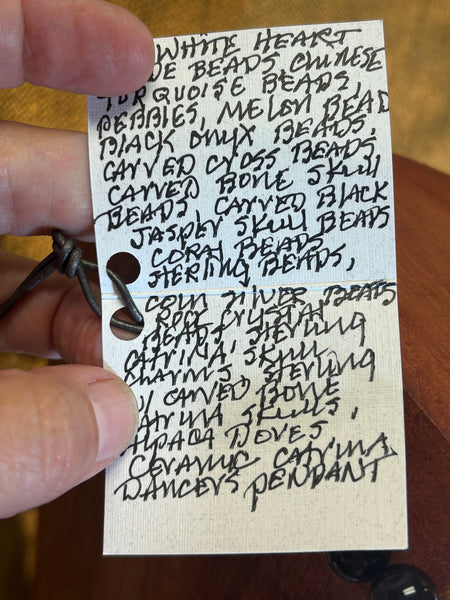 WHITE HEART
BEADS, CHINESE
TURQUOISE BEADS,
PEBBLES, MELON BEAD
BLACK ONYX BEADS,
CARVED CROSS BEADS,
CARVED BONE SKULL
BEADS CARVED BLACK
JASPER SKULL BEADS
CORAL BEADS
STERLING BEADS,
COIN SILVER BEADS
ROCK CRYSTAL
BEADS, STERLING
CATRINA, SKULL
CHARMS, STERLING
CARVED BONE
CATRINA SKULLS,
ALPACA DOVES
CERAMIC CATRINA
DANCERS PENDANT